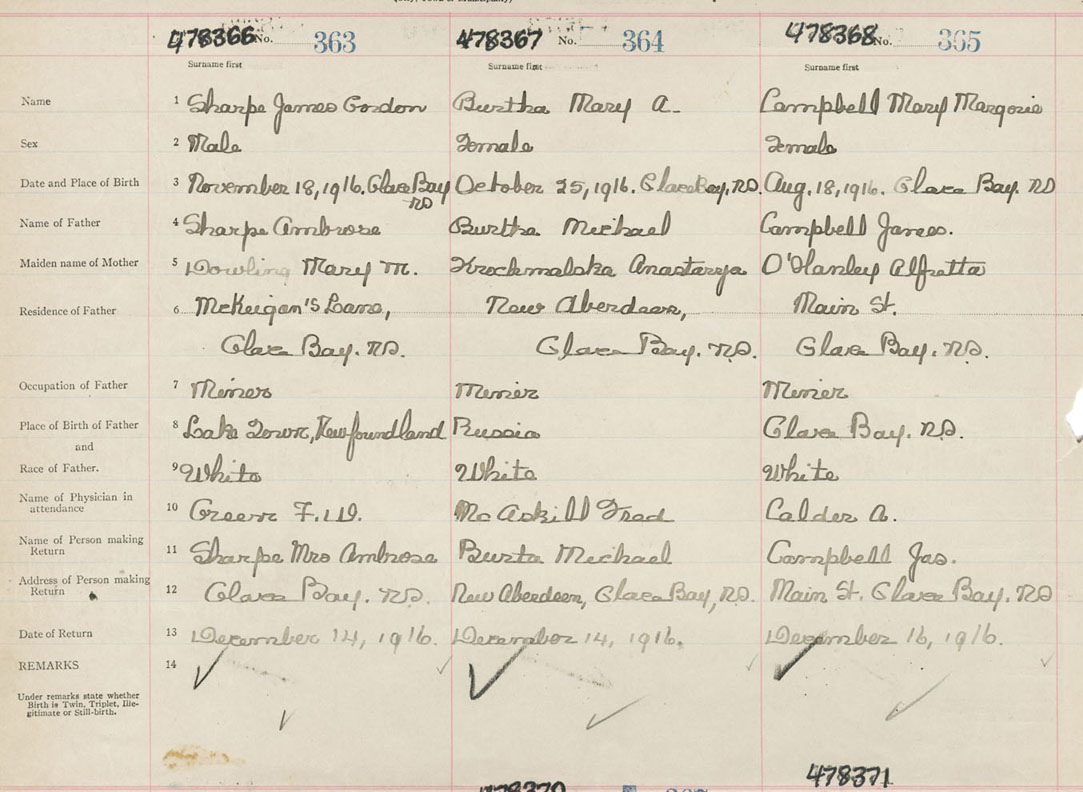 478366 No. 363 478367 No. 364 478368 No. 365
Surname first Surname first Surname first
Name 1 Sharpe James Gordon Burtha Mary A. Campbell Mary Margorie
Sex 2 Male Female Female
Date and Place of Birth 3 November 18, 1916. Glace Bay October 25, 1916. Glace Bay, N.S. Aug. 18, 1916. Glace Bay. N.S
N.S
Name of Father 4 Sharpe Ambrose Burtha Michael Campbell James.
Maiden name of Mother 5 Dowling Mary M. Krochmalska Anastazya O'Hanley Alfretta
Residence of Father 6 McKeigan's Lane, New Aberdeen, Main St.
Glace Bay. N.S. Glace Bay. N.S. Glace Bay. N.S.
Occupation of Father 7 Miner Miner Miner
Place of Birth of Father 8 Newfoundland Russia Glace Bay. N.S.
and
Race of Father. 9 White White White
Name of Physician in
attendance 10 Green F.W. McAskill Fred Calder A.
Name of Person making
Return 11 Sharpe Mrs Ambrose Burta Michael Campbell Jas.
Address of Person making
Return 12 Glace Bay. N.S. New Aberdeen, Glace Bay, N.S. Main St. Glace Bay. N.S
Date of Return 13 December 14, 1916. December 14, 1916. December 16, 1916.
REMARKS 14
Under remarks state whether
Birth is Twin, Triplet, Ille-
gitimate or Still-birth.
478371
478370